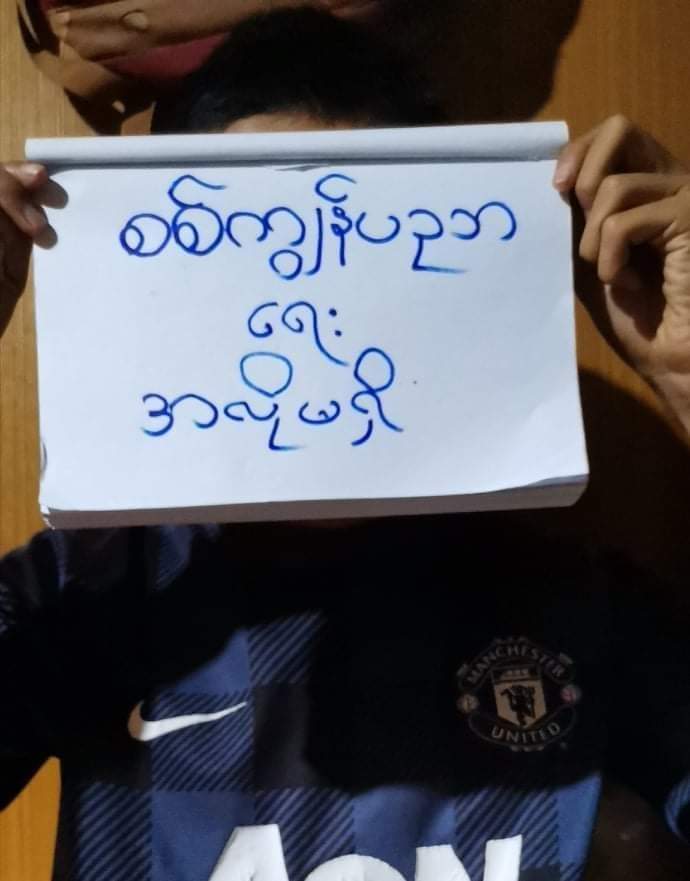 စစ်ကျွန်ပညာ
ရေး
အလိုမရှိ
MANCHESTER
UNITED
AON